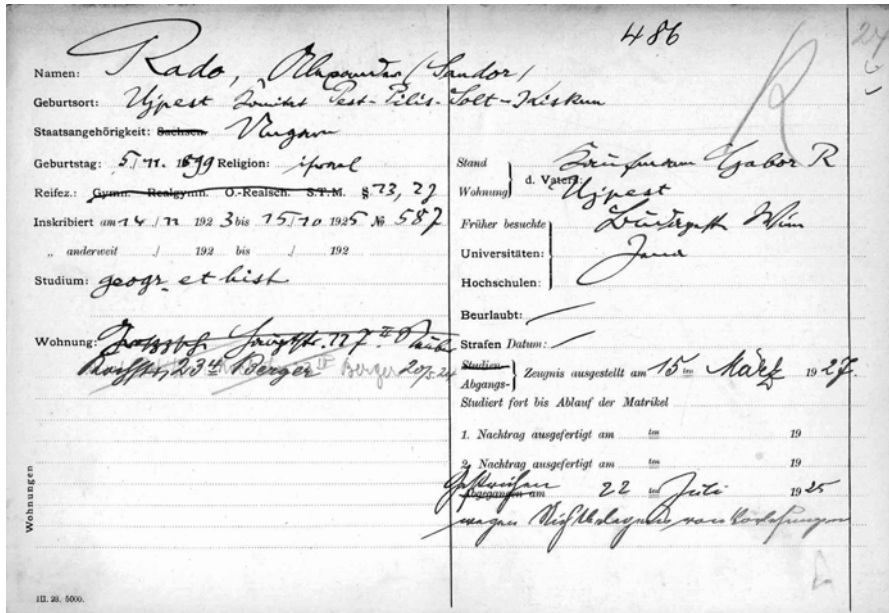 486
Namen: Rado, Alexander (Sandor)
Geburtsort: Ujpest Komitat Pest-Pilis-Solt-Kiskun
Staatsangehörigkeit: Sachsen. Ungarn
Geburtstag: 5/11. 1899 Religion: israel
Reifez.: Gymn. Realgymn. O.-Realsch. S.T.M. §.
Inskribiert am 14/11 1923 bis 15/10 1925 № 587
„ anderweit / 192 bis / 192
Studium: geogr. et hist
Wohnung: Hauptstr. 127 II
23 Berger IV Berger 20/5.24
Wohnungen
III. 23. 5000.
Stand
Wohnung } d. Vaters: Kaufmann Gabor R
Ujpest
Früher besuchte Budapest Wien
Universitäten: Jena
Hochschulen:
Beurlaubt:
Strafen Datum:
Studien-
Abgangs- } Zeugnis ausgestellt am 15ten März 1927.
Studiert fort bis Ablauf der Matrikel
1. Nachtrag ausgefertigt am ten 19
2. Nachtrag ausgefertigt am ten 19
Gestrichen
Abgegangen am 22 ten Juli 1925
wegen Nichtbelegens von Vorlesungen